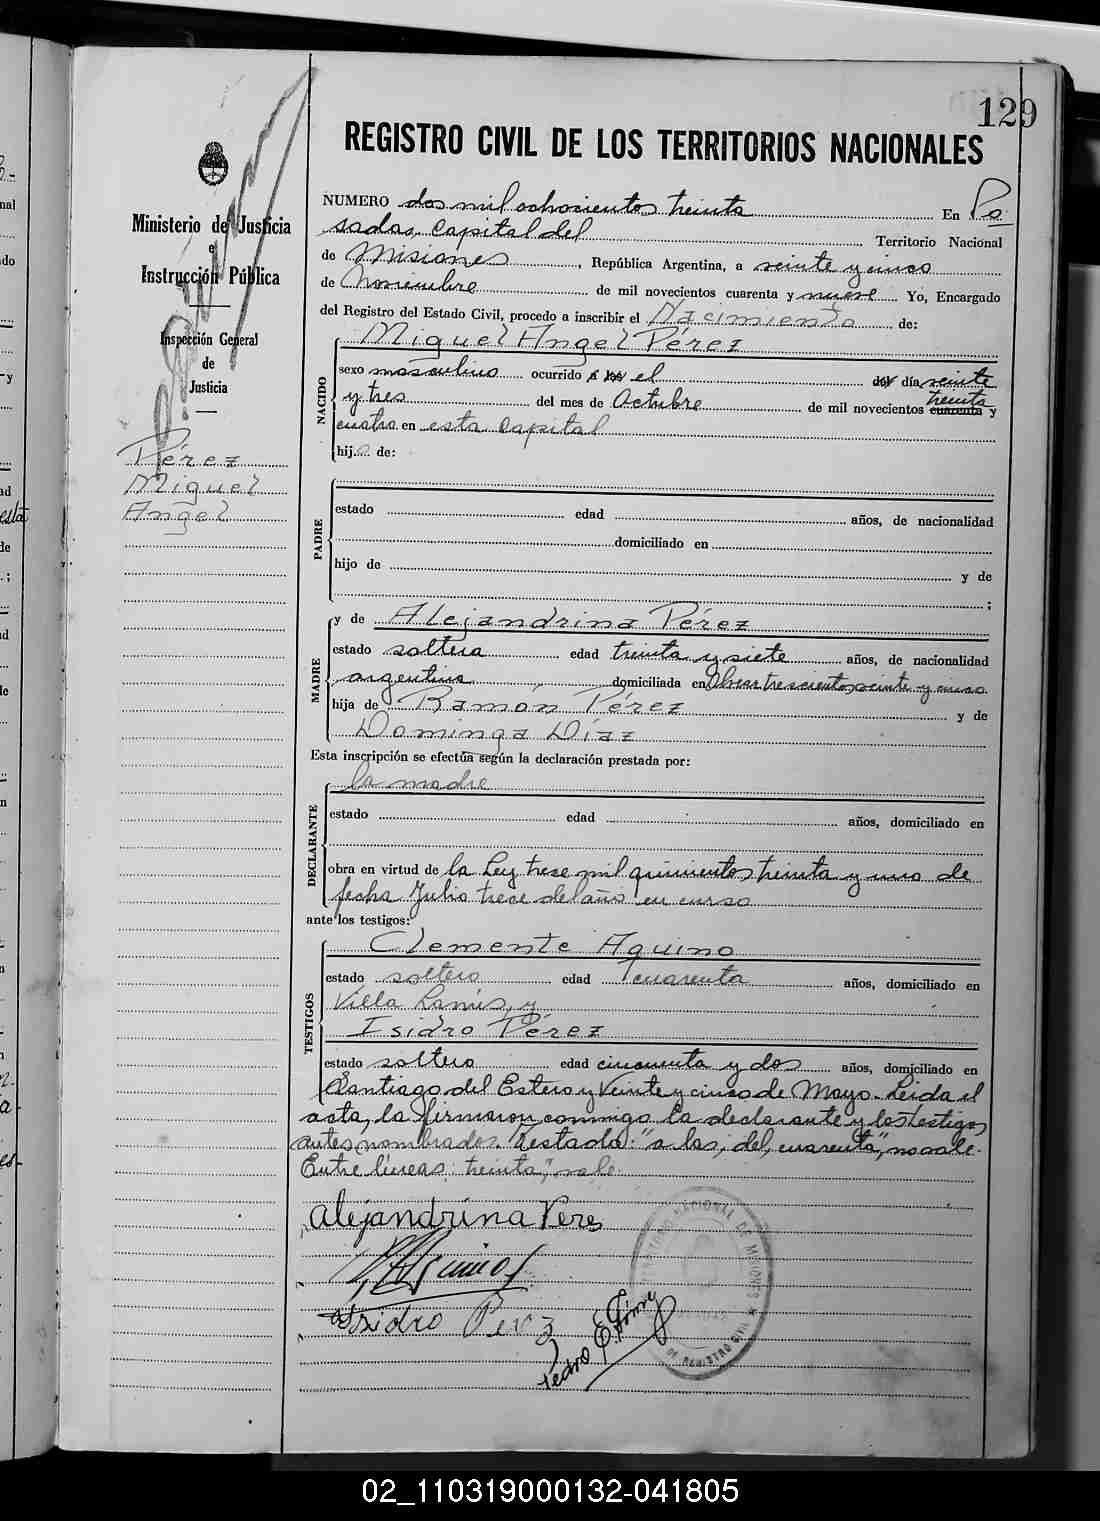 129
REGISTRO CIVIL DE LOS TERRITORIOS NACIONALES
Ministerio de Justicia
e
Instrucción Pública
Inspección General
de
Justicia
Pérez
Miguel
Angel
NUMERO dos mil ochocientos treinta En Po
sadas, Capital del Territorio Nacional
de Misiones, República Argentina, a veinte y cinco
de Noviembre de mil novecientos cuarenta y nueve Yo, Encargado
del Registro del Estado Civil, procedo a inscribir el Nacimiento de:
Miguel Angel Pérez
NACIDO
sexo masculino ocurrido el día veinte
y tres del mes de Octubre de mil novecientos cuarenta treinta y
cuatro en esta Capital
hijo de:
PADRE
estado edad años, de nacionalidad
domiciliado en
hijo de y de
;
MADRE
y de Alejandrina Pérez
estado soltera edad treinta y siete años, de nacionalidad
argentina domiciliada en trescientos veinte y cinco
hija de Ramón Pérez y de
Dominga Díaz
Esta inscripción se efectúa según la declaración prestada por:
la madre
DECLARANTE
estado edad años, domiciliado en
obra en virtud de la Ley trece mil quinientos treinta y uno de
fecha Julio trece del año en curso
ante los testigos:
TESTIGOS
Clemente Aquino
estado soltero edad cuarenta años, domiciliado en
Villa Lanús, y
Isidro Pérez
estado soltero edad cincuenta y dos años, domiciliado en
Santiago del Estero y Veinte y cinco de Mayo. Leida el
acta, la firmaron conmigo la declarante y los testigos
antes nombrados. Testado: "a las, del, cuarenta", no vale.
Entre líneas: treinta", vale.
Alejandrina Peres
Isidro Perez
Pedro E. Gómez
02_110319000132-041805